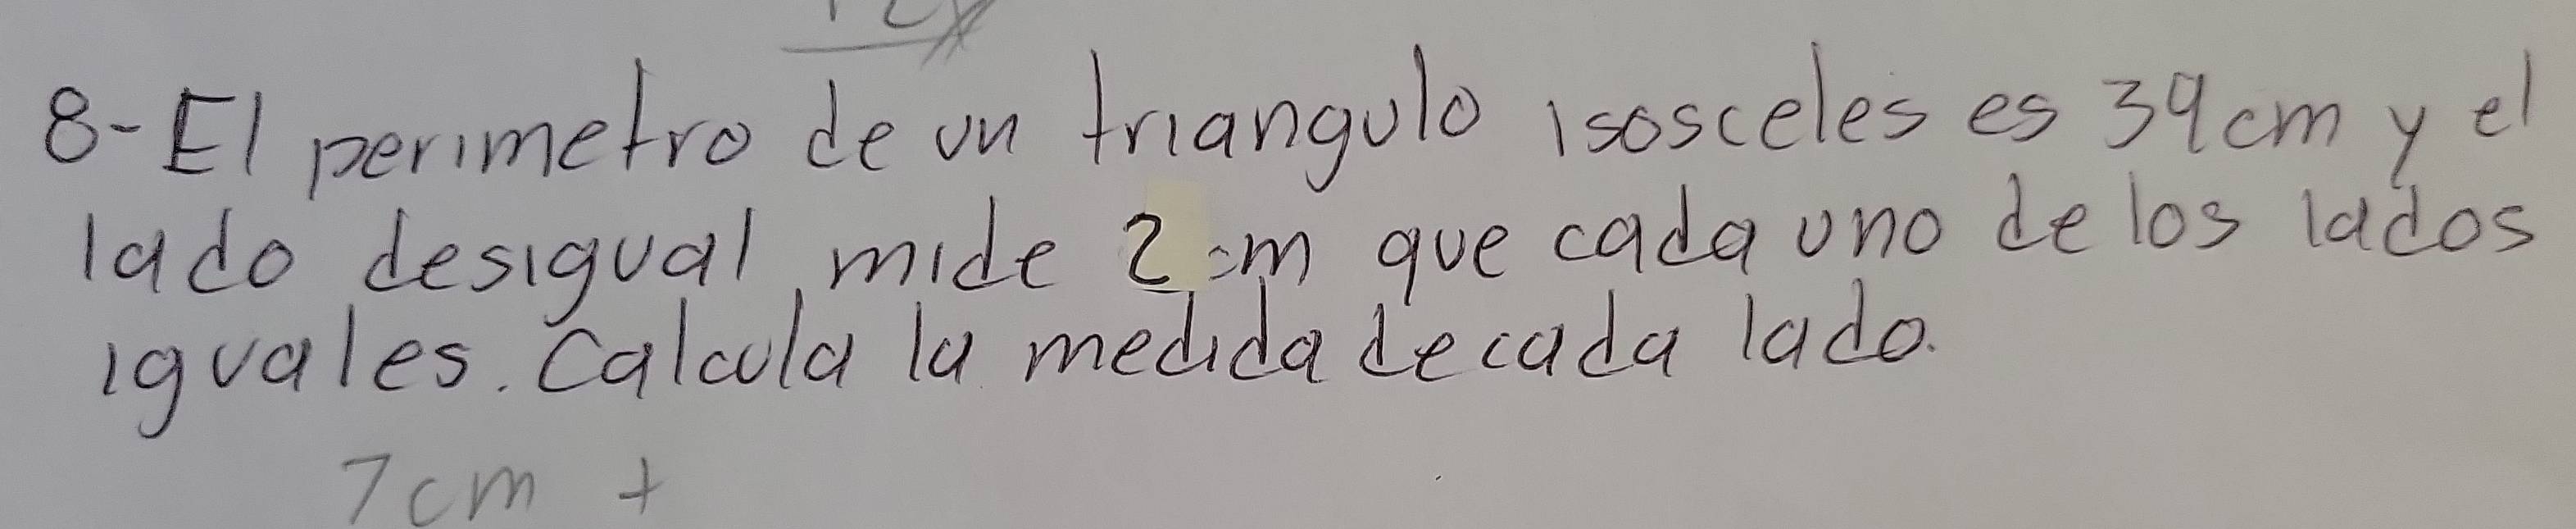 8-El perimetro de un triangulo isosceles es 39cm y el
lado desigual mide 2 cm que cada uno de los lados
iguales. Calcula la medida de cada lado.
7cm +